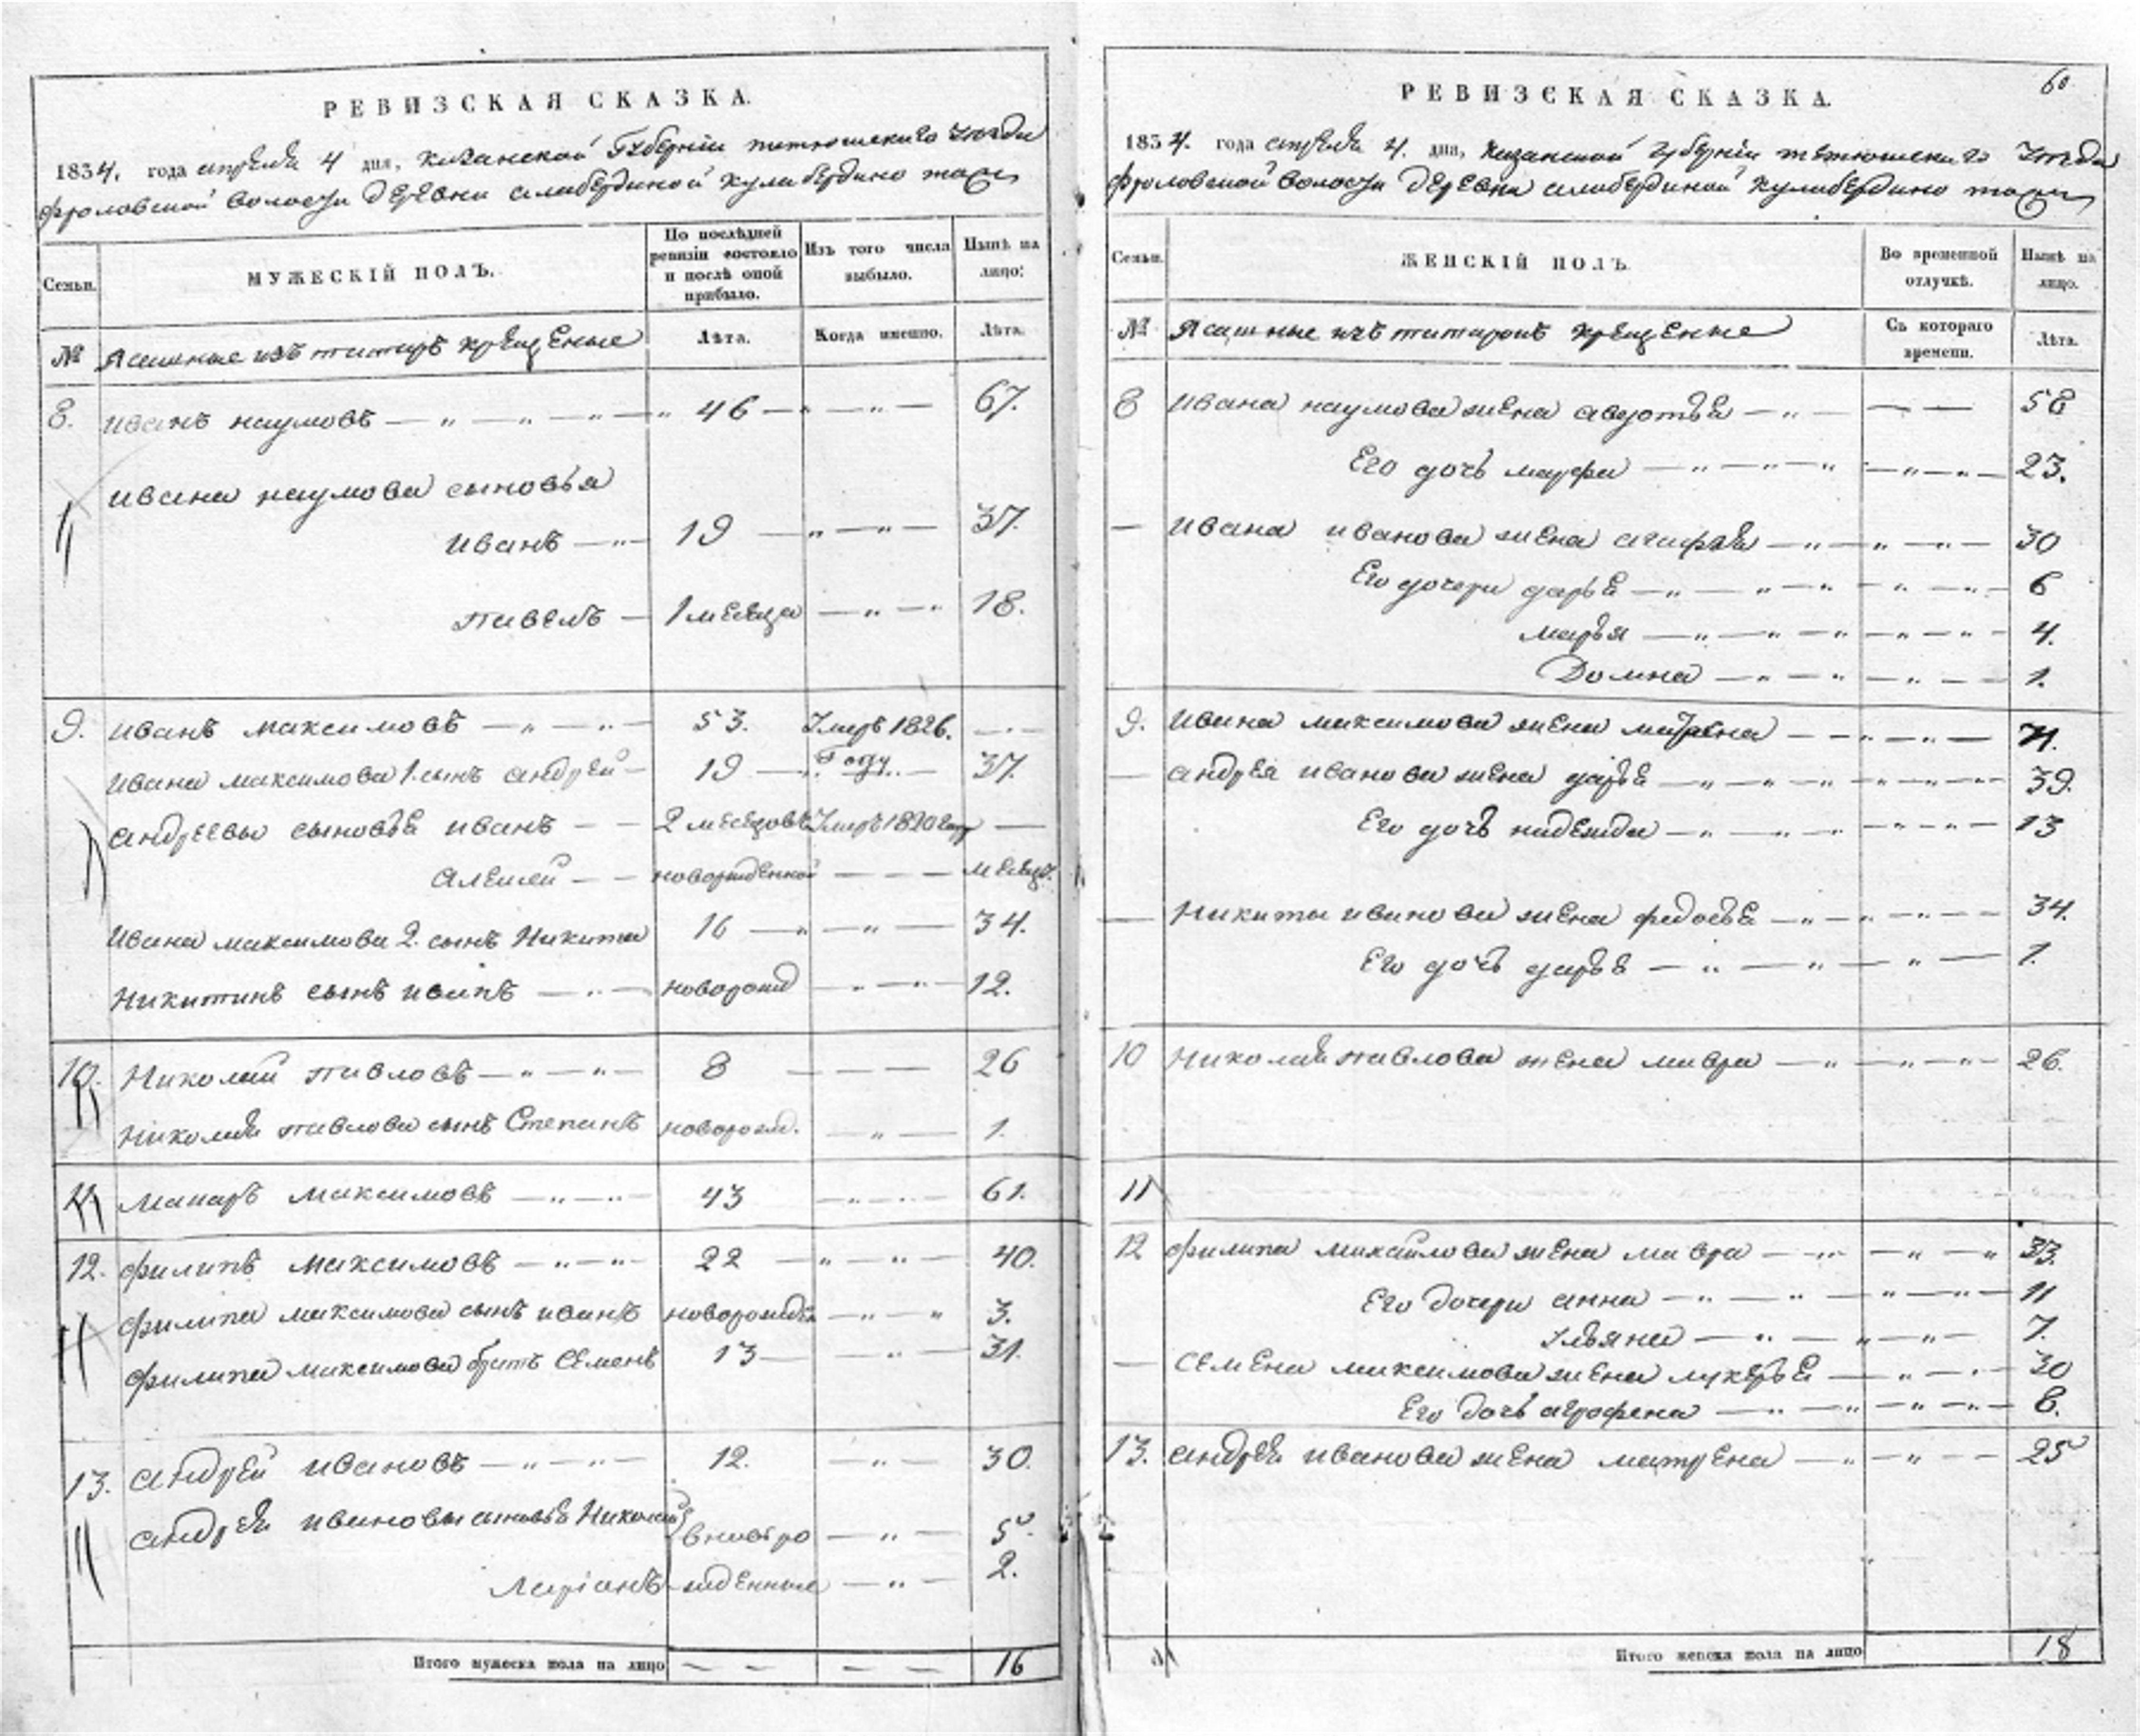 РЕВИЗСКАЯ СКАЗКА.
1834. года апреля 4 дня, Казанской Губернiи тетюшскаго уезда
фроловской волости деревни алабердиной кулабердино тожъ
Семьи. МУЖЕСКІЙ ПОЛЪ. По послѣдней ревизіи состояло и послѣ оной прибыло. Изъ того числа выбыло. Нынѣ на лицо:
№ Ясашные изъ татаръ крещеные Лѣта. Когда именно. Лѣта.
8. иванъ наумовъ — „ — „ — „ — „ 46 — „ — „ — 67.
ивана наумова сыновья
иванъ — „ — 19 — „ — „ — 37.
павелъ — 1 месяца — „ — „ 18.
9. иванъ максимовъ — „ — „ — 53. Умеръ 1826. — „ —
Году
ивана максимова 1. сынъ андрей — 19 — „ — 37.
андреевы сыновья иванъ — — 2 месецовъ Умеръ 1820 году —
алексей — — новорожденной — — — месецъ.
ивана максимова 2. сынъ Никита 16 — „ — „ — 34.
Никитинъ сынъ осипъ — „ — новорожд — „ — „ — 12.
10. Николай павловъ — „ — „ — 8 — — — 26
Николая павлова сынъ Степанъ новорожд. — „ — 1.
11 макаръ максимовъ — „ — „ — 43 — „ — „ — 61.
12. филипъ максимовъ — „ — „ — 22 — „ — „ — 40.
филипа максимова сынъ иванъ новорожден — „ — „ 3.
филипа максимова братъ Семенъ 13 — — „ — 31.
13. андрей ивановъ — „ — „ — 12. — „ — 30.
андрея ивановы сыновья Николай вновь ро — „ — 5.
ларiонъ жденные — „ — 2.
Итого мужеска пола на лицо — — — — 16
60
РЕВИЗСКАЯ СКАЗКА.
1834. года апреля 4. дня, Казанской губернiи тетюшскаго уезда
фроловской волости деревни алабердиной кулабердино тожъ
Семьи. ЖЕНСКІЙ ПОЛЪ. Во временной отлучкѣ. Нынѣ на лицо.
№ Ясашные изъ татаровъ крещеные Съ котораго времени. Лѣта.
8 ивана наумова жена авдотья — „ — — — 58
Его дочь марфа — „ — „ — „ — „ — „ — 23.
— ивана иванова жена агафья — „ — „ — „ — 30
Его дочери дарья — „ — „ — „ — „ — „ — 6
марья — „ — „ — „ — „ — „ — 4.
Домна — „ — „ — „ — 1.
9. ивана максимова жена матрена — — „ — „ — 71.
— андрея иванова жена дарья — „ — „ — „ — „ — 39.
Его дочь надежда — „ — „ — „ — „ — 13
— Никиты иванова жена федосья — „ — „ — „ — 34.
Его дочь дарья — „ — „ — „ — 1.
10 Николая павлова жена мавра — „ — „ — „ — 26.
11
12 филипа михайлова жена мавра — „ — „ — „ 33.
Его дочери анна — „ — „ — „ — „ — 11
Ульяна — „ — „ — „ — 7.
— Семена максимова жена лукерья — „ — „ — 30
Его дочь аграфена — „ — „ — „ — „ — 8.
13. андрея иванова жена матрена — „ — „ — — 25
Итого женска пола на лицо 18